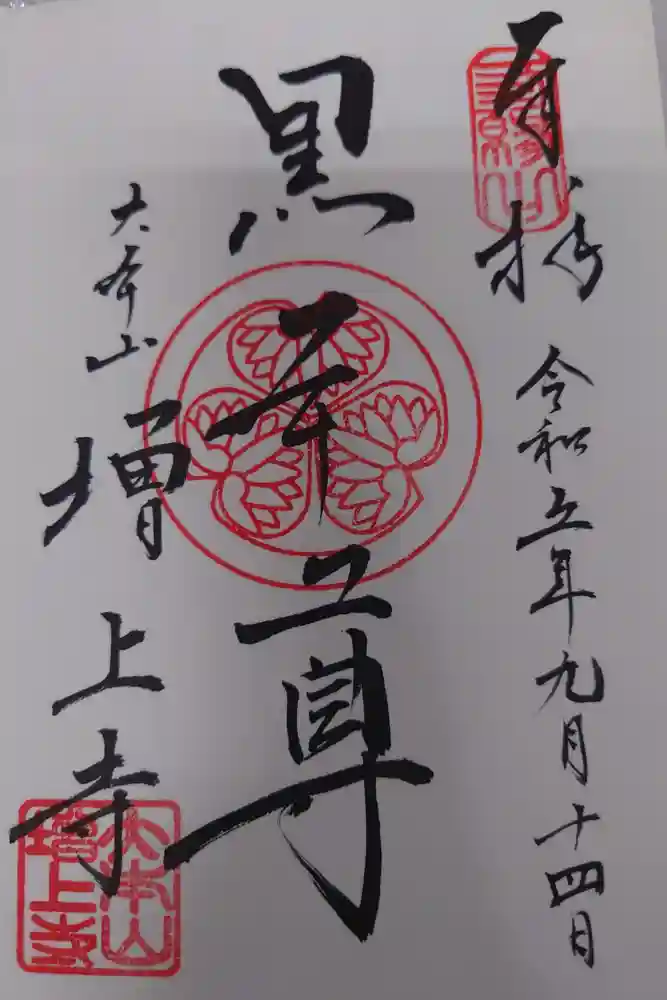 奉拝
令和五年九月十四日
黒本尊
大本山
増上寺
大本山
増上寺